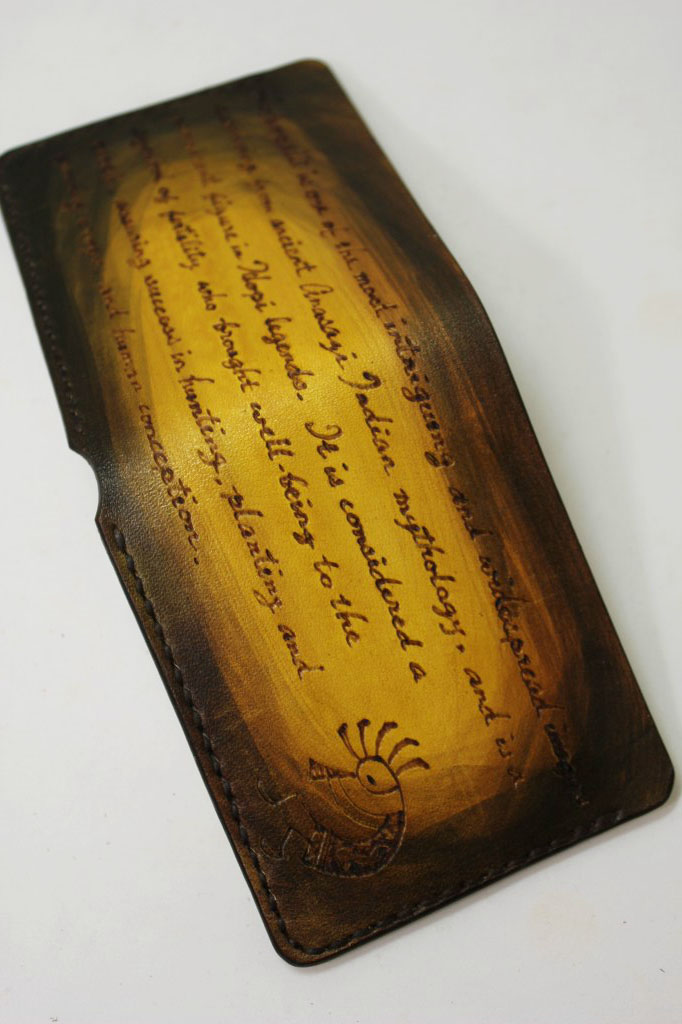 is one of the most intriguing and widespread images
from ancient Anasazi Indian mythology, and is a
figure in Hopi legends. It is considered a
of fertility who brought well-being to the
assuring success in hunting, planting and
and human conception.